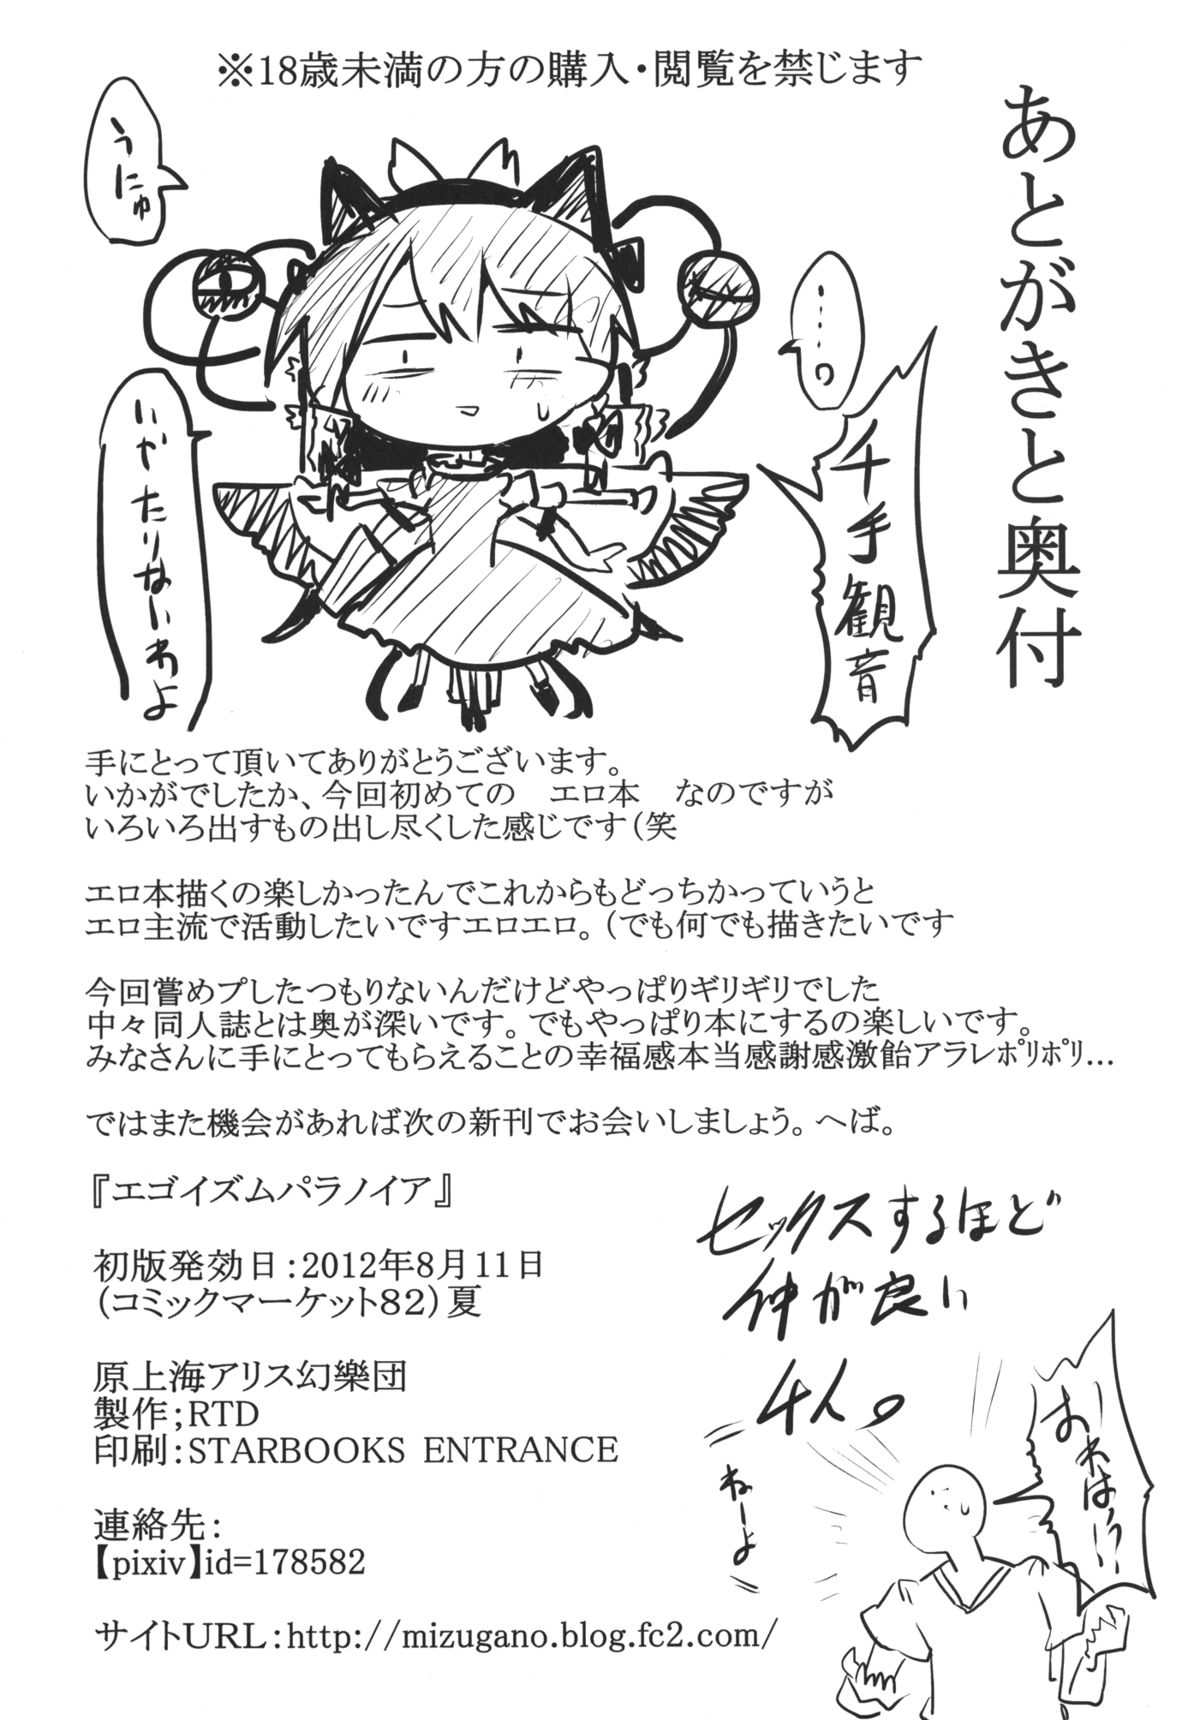 ※18歳未満の方の購入・閲覧を禁じます
あとがきと奥付
うにゅ
……。
千手観音
いやたりないわよ
手にとって頂いてありがとうございます。
いかがでしたか、今回初めての　エロ本　なのですが
いろいろ出すもの出し尽くした感じです（笑
エロ本描くの楽しかったんでこれからもどっちかっていうと
エロ主流で活動したいですエロエロ。（でも何でも描きたいです
今回嘗めプしたつもりないんだけどやっぱりギリギリでした
中々同人誌とは奥が深いです。でもやっぱり本にするの楽しいです。
みなさんに手にとってもらえることの幸福感本当感謝感激飴アラレﾎﾟﾘﾎﾟﾘ…
ではまた機会があれば次の新刊でお会いしましょう。へば。
『エゴイズムパラノイア』
初版発効日：2012年8月11日
（コミックマーケット82）夏
原上海アリス幻樂団
製作；RTD
印刷：STARBOOKS ENTRANCE
連絡先：
【pixiv】id=178582
サイトURL：http://mizugano.blog.fc2.com/
セックスするほど
仲が良い
4人。
おれは!?
ねーよ